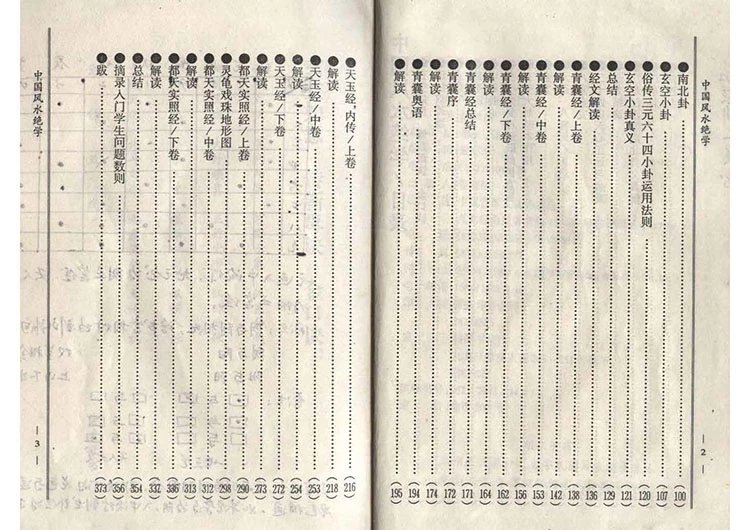 中国风水绝学
— 2 —
●南北卦(100)
●玄空小卦(107)
●俗传三元六十四小卦运用法则(120)
●玄空小卦真义(121)
●总结(129)
●经文解读(136)
●青囊经/上卷(138)
●解读(142)
●青囊经/中卷(153)
●解读(156)
●青囊经/下卷(162)
●解读(164)
●青囊经总结(171)
●青囊序(172)
●解读(174)
●青囊奥语(194)
●解读(195)
●天玉经,内传/上卷(216)
●解读(218)
●天玉经/中卷(253)
●解读(254)
●天玉经/下卷(272)
●解读(273)
●都天实照经/上卷(290)
●灵龟戏珠地形图(298)
●都天实照经/中卷(312)
●解读(313)
●都天实照经/下卷(336)
●解读(337)
●总结(354)
●摘录入门学生问题数则(356)
●跋(373)
中国风水绝学
— 3 —